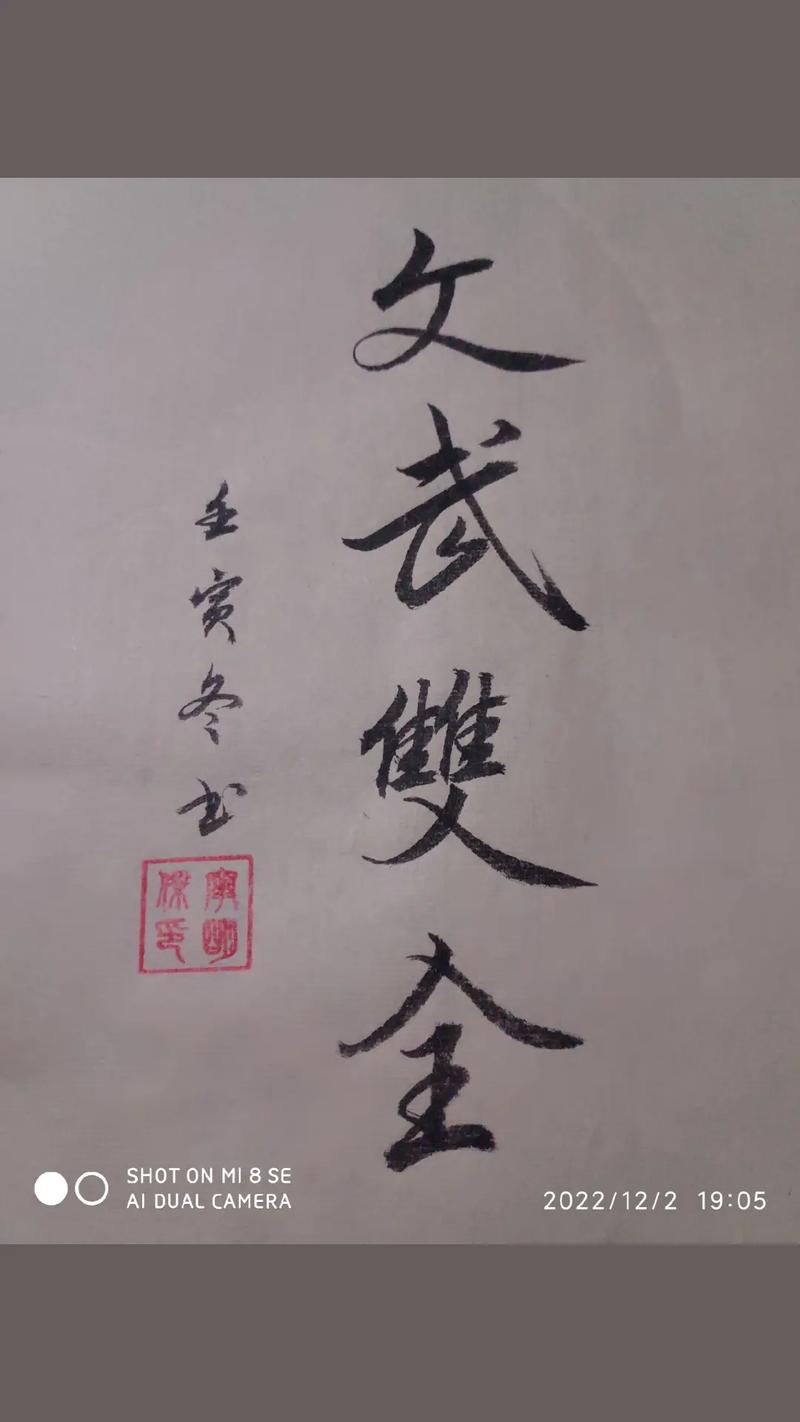 文武雙全
壬寅冬书
SHOT ON MI 8 SE
AI DUAL CAMERA
2022/12/2 19:05